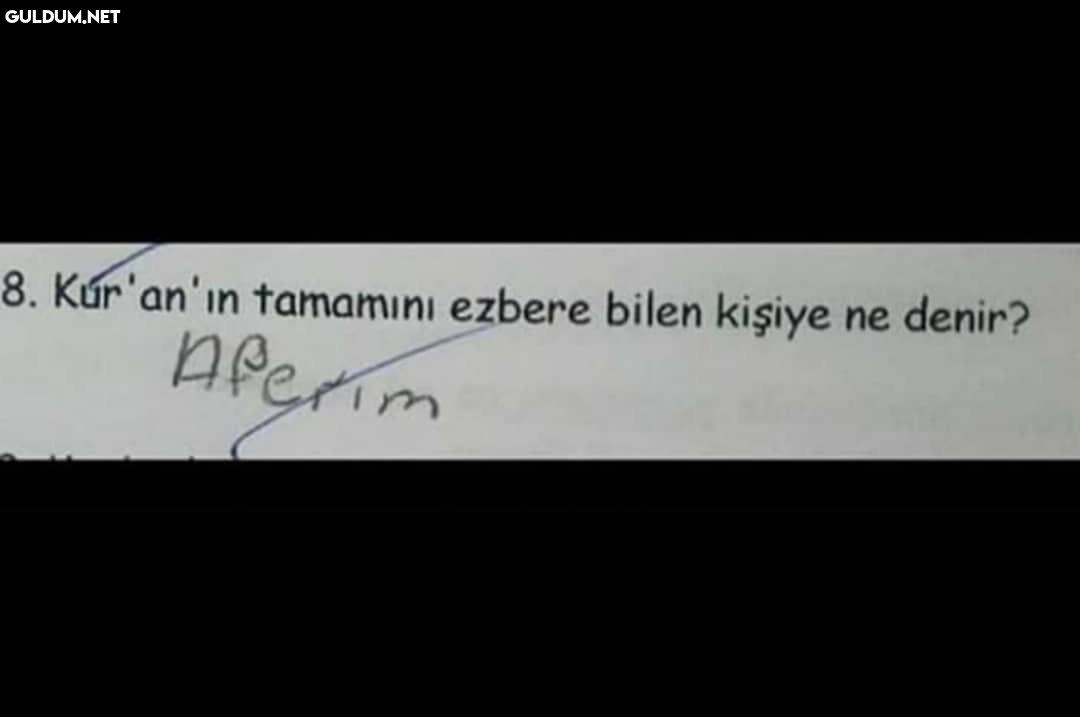 GULDUM.NET
8. Kur'an'ın tamamını ezbere bilen kişiye ne denir?
Aferim